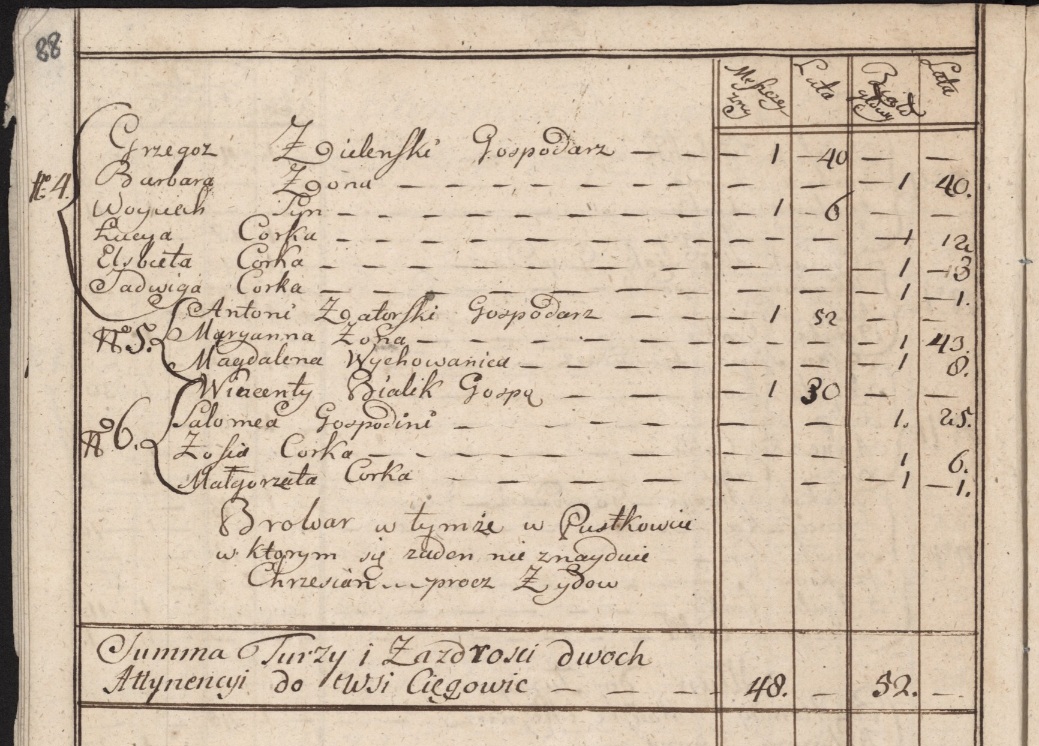 88
Męszczy zny Lata Biało głowy Lata
Grzegoz Zgielenski Gospodarz — — — 1 40 — —
№ 4. Barbara Zona — — — — — — — — — — — — 1 40.
Woyciech Syn — — — — — — — — — 1 — 6 — —
Łucya Corka — — — — — — — — — — — — 1 12
Elsbieta Corka — — — — — — — — — — — — 1 — 3
Jadwiga Corka — — — — — — — — — — — — 1 — 1.
Antoni Zgatorski Gospodarz — — — 1 52 — —
№ 5. Maryanna Zona — — — — — — — — — — 1 43.
Magdalena Wychowanica — — — — — — — — 1 8.
Wincenty Bialik Gospo — — — — 1 30 — —
Salomea Gospodini — — — — — — — — 1. 25.
№ 6. Zosia Corka — — — — — — — — — — 1 6.
Małgorzata Corka — — — — — — — — 1 — 1.
Browar w tymże w Pustkowiu
w ktorym się zaden nie znayduie
Chrzesian oprocz Zydow
Summa Turzy i Zazdrosci dwoch
Attynencyi do Wsi Cięgowic — — — — 48. — 52. —